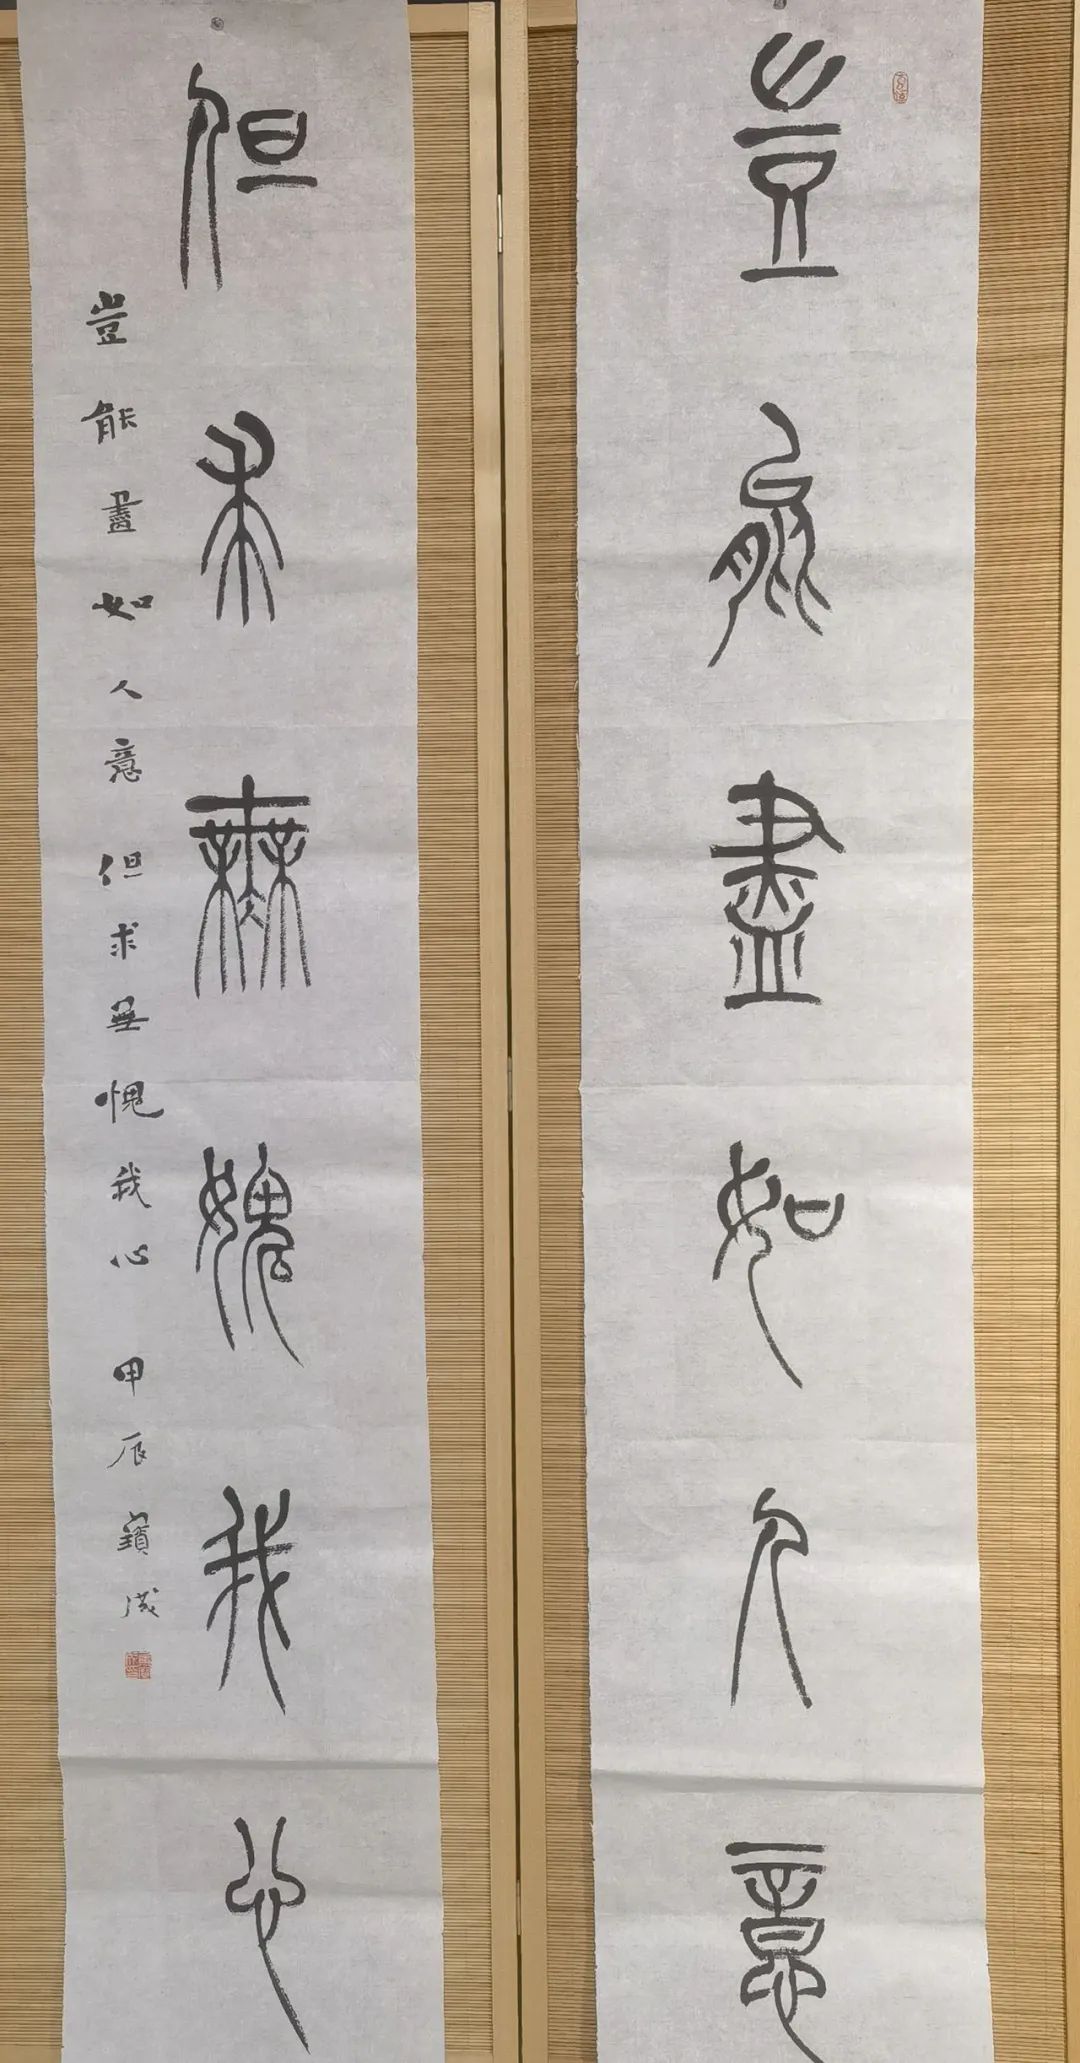 豈能盡如人意
但求無媿我心
豈能盡如人意但求無愧我心 甲辰